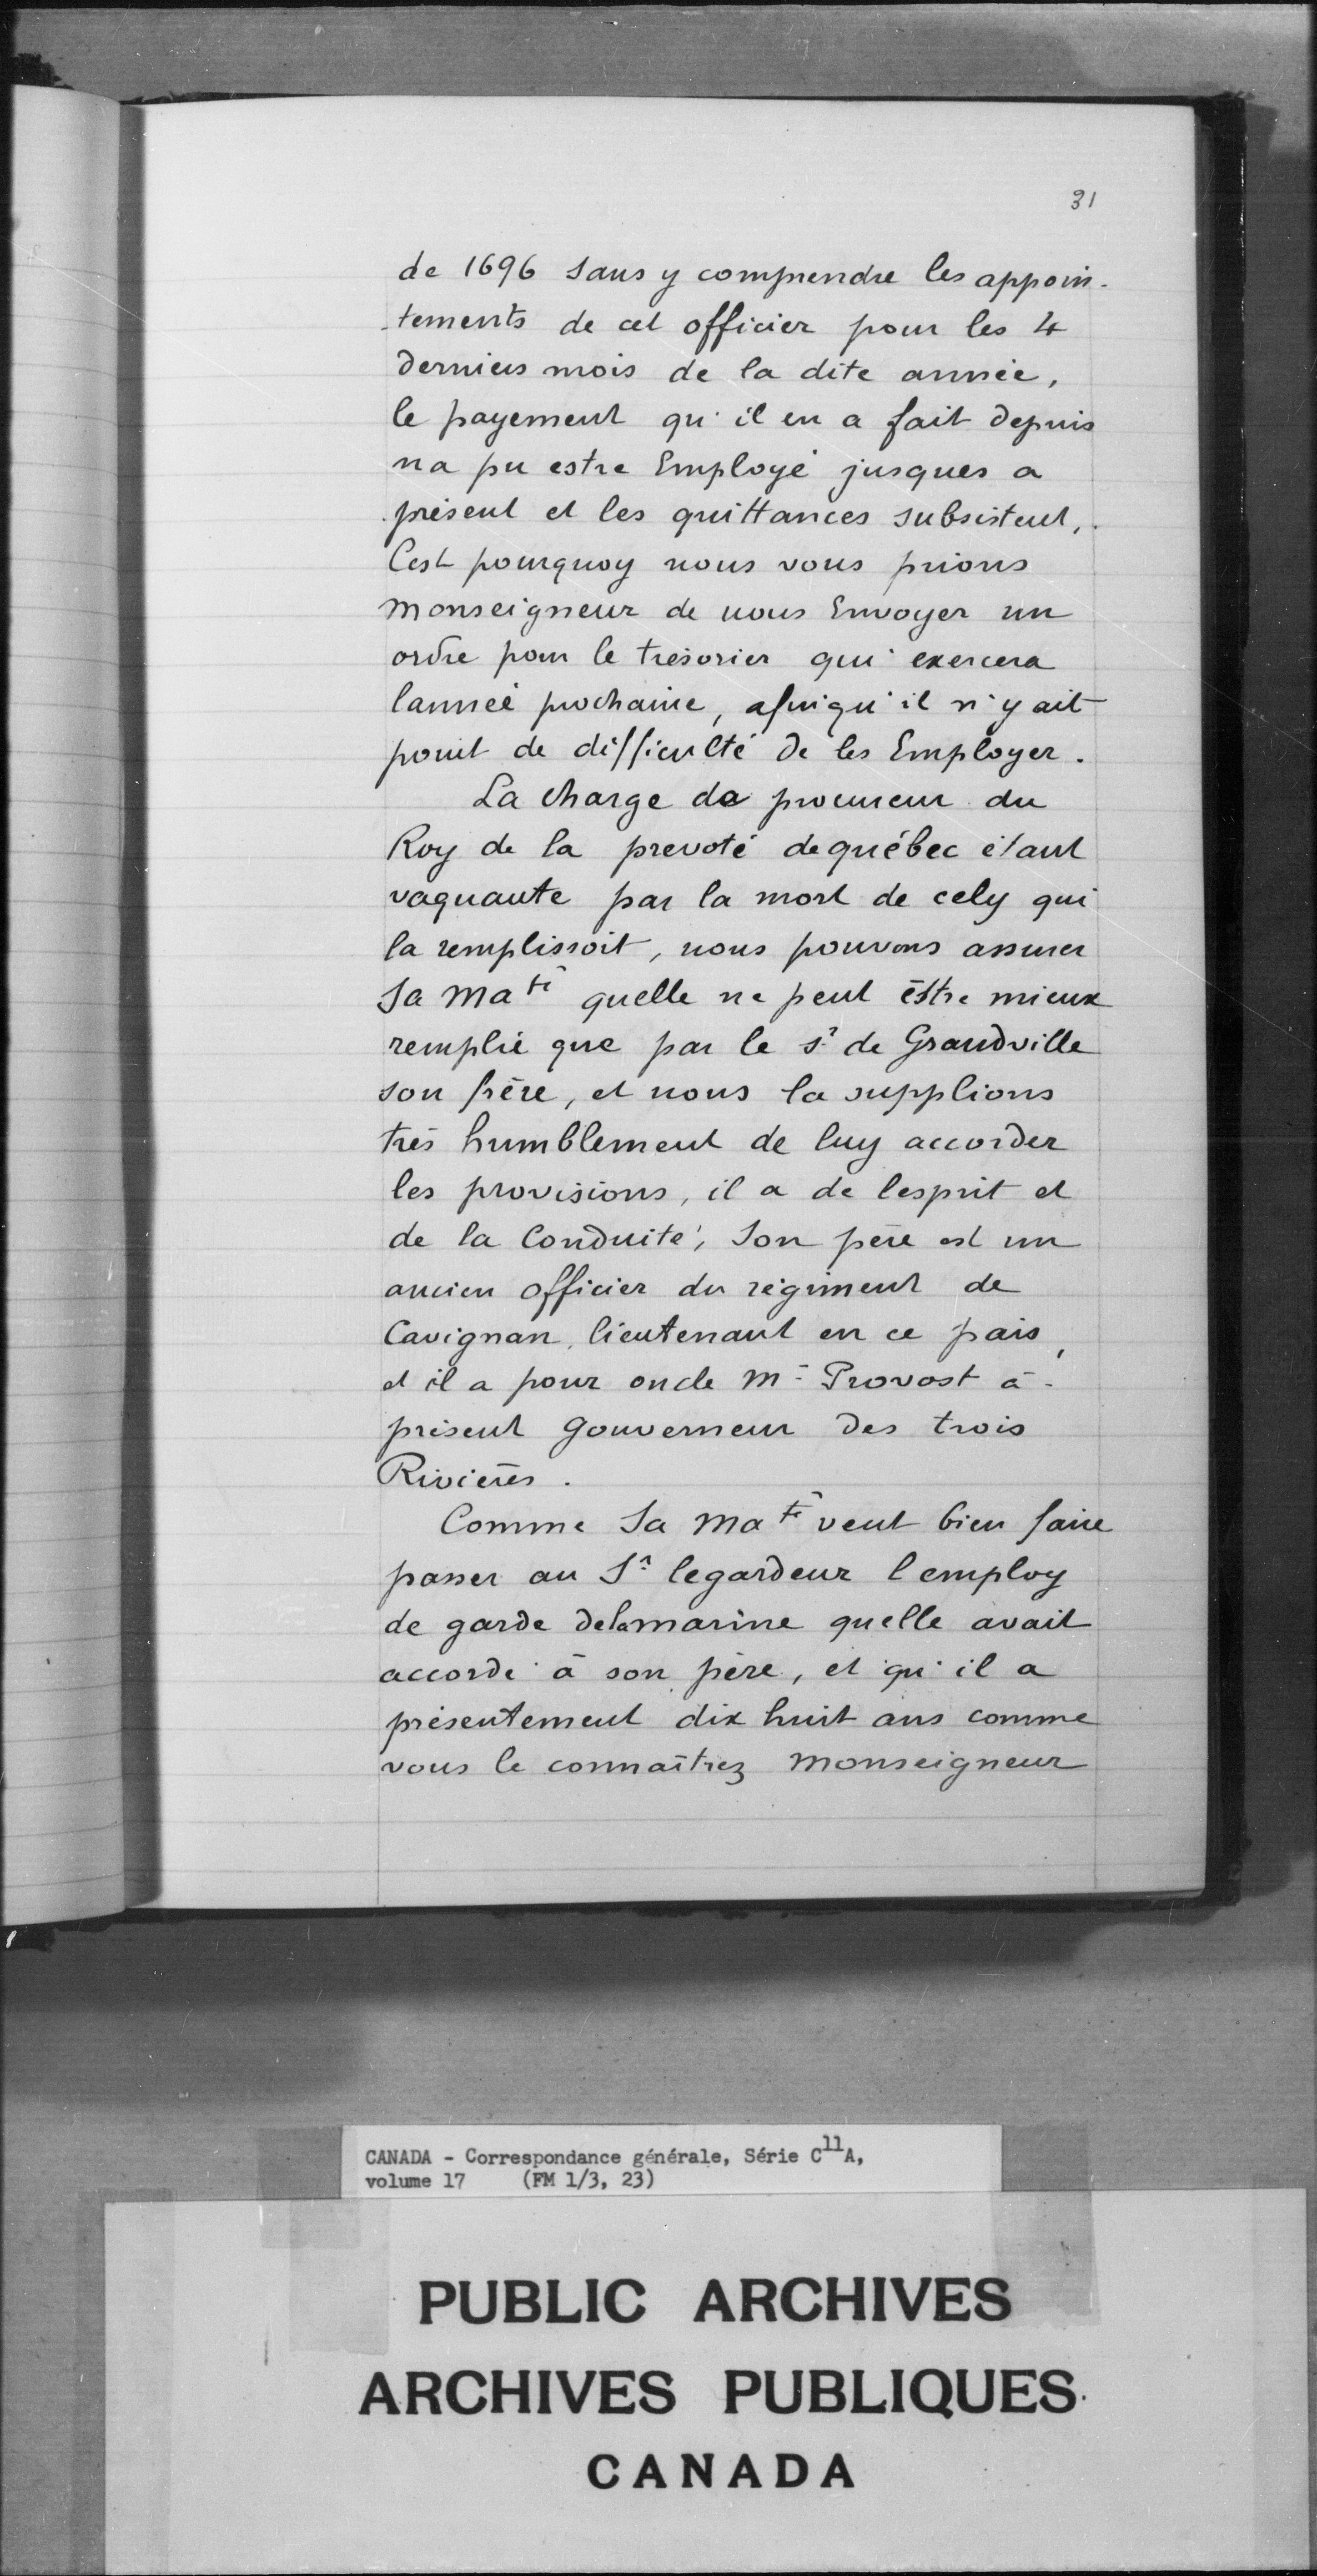 31
de 1696 sans y comprendre les appoin-
-tements de cet officier pour les 4
derniers mois de la dite année,
le payement qu'il en a fait depuis
na pu estre Employé jusques a
présent et les quittances subsistent,
Cest pourquoy nous vous prions
Monseigneur de nous Envoyer un
ordre pour le trésorier qui exercera
lannée prochaine, afinqu'il n'y ait
point de difficulté de les Employer.
La charge de procureur du
Roy de la prevoté de québec étant
vaquante par la mort de cely qui
la remplissoit, nous pouvons assurer
Sa Ma té quelle ne peut éstre mieux
remplie que par le Sr de Grandville
son frère, et nous la supplions
très humblement de luy accorder
les provisions, il a de lesprit et
de la Conduite, Son père est un
ancien officier du régiment de
Cavignan, lieutenant en ce pais,
et il a pour oncle Mr Provost à-
présent gouverneur des trois
Rivières.
Comme Sa Ma té veut bien faire
passer au Sr legardeur l'employ
de garde delamarine quelle avait
accordé à son père, et qu'il a
présentement dix huit ans comme
vous le connaîtrez Monseigneur
CANADA - Correspondance générale, Série C11A,
volume 17 (FM 1/3, 23)
PUBLIC ARCHIVES
ARCHIVES PUBLIQUES
CANADA